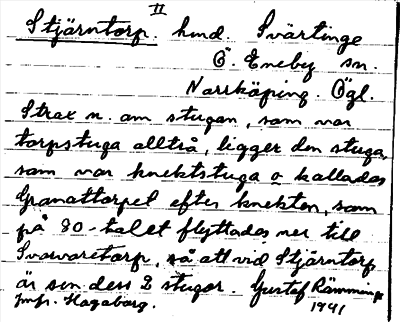 II
Stjärntorp. hmd. Svärtinge
Ö. Eneby sn.
Norrköping. Ögl.
Strax n. om stugan, som var
torpstuga alltså, ligger den stuga,
som var knektstuga o kallades
Granattorpet efter knekten, som
på 80-talet flyttades ner till
Svarvaretorp, så att vid Stjärntorp
är sen dess 2 stugor. Gustaf Rämminge
Jmf. Hagaborg. 1941